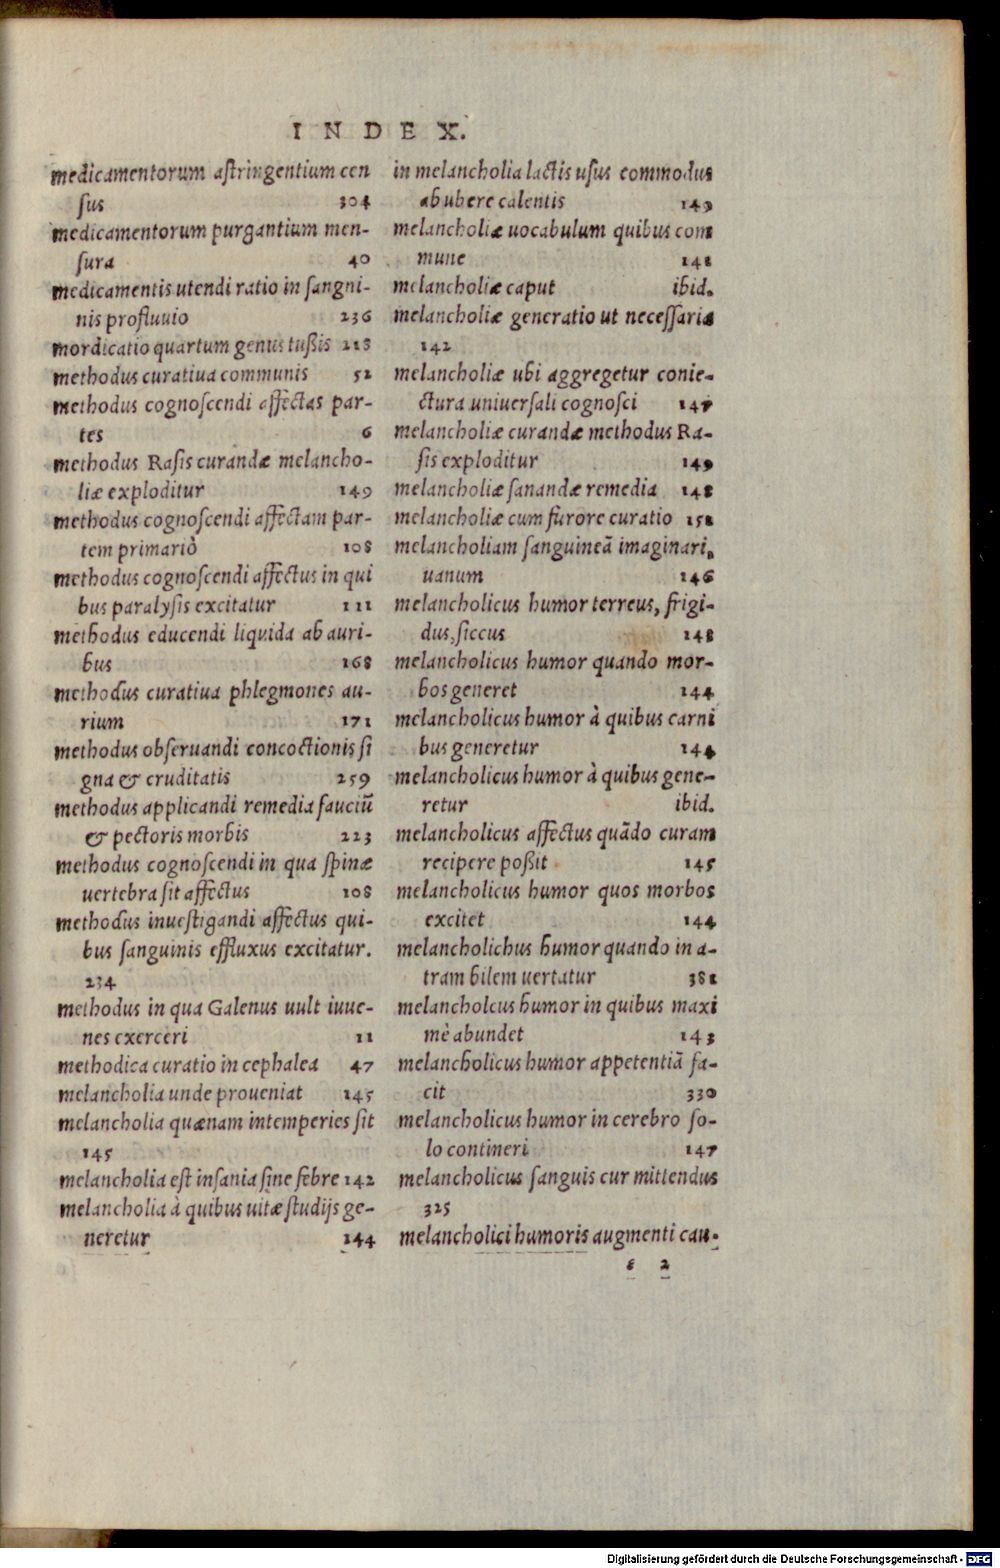 INDEX.
medicamentorum astringentium cen
sus 304
medicamentorum purgantium men-
sura 40
medicamentis utendi ratio in sangni-
nis profluuio 236
mordicatio quartum genus tußis 218
methodus curatiua communis 52
methodus cognoscendi affectas par-
tes 6
methodus Rasis curandæ melancho-
liæ exploditur 149
methodus cognoscendi affectam par-
tem primariò 108
methodus cognoscendi affectus in qui
bus paralysis excitatur 111
methodus educendi liquida ab auri-
bus 168
methodus curatiua phlegmones au-
rium 171
methodus obseruandi concoctionis si
gna & cruditatis 259
methodus applicandi remedia fauciũ
& pectoris morbis 223
methodus cognoscendi in qua spinæ
uertebra sit affectus 108
methodus inuestigandi affectus qui-
bus sanguinis effluxus excitatur.
234
methodus in qua Galenus uult iuue-
nes exerceri 11
methodica curatio in cephalea 47
melancholia unde proueniat 145
melancholia quænam intemperies sit
145
melancholia est insania sine febre 142
melancholia à quibus uitæ studijs ge-
neretur 144
in melancholia lactis usus commodus
ab ubere calentis 149
melancholiæ uocabulum quibus com
mune 141
melancholiæ caput ibid.
melancholiæ generatio ut necessaria
142
melancholiæ ubi aggregetur conie-
ctura uniuersali cognosci 147
melancholiæ curandæ methodus Ra-
sis exploditur 149
melancholiæ sanandæ remedia 148
melancholiæ cum furore curatio 151
melancholiam sanguineã imaginari,
uanum 146
melancholicus humor terreus, frigi-
dus, siccus 148
melancholicus humor quando mor-
bos generet 144
melancholicus humor à quibus carni
bus generetur 144
melancholicus humor à quibus gene-
retur ibid.
melancholicus affectus quãdo curam
recipere poßit 145
melancholicus humor quos morbos
excitet 144
melancholichus humor quando in a-
tram bilem uertatur 381
melancholcus humor in quibus maxi
mè abundet 143
melancholicus humor appetentiã fa-
cit 330
melancholicus humor in cerebro so-
lo contineri 147
melancholicus sanguis cur mittendus
325
melancholici humoris augmenti cau-
2
Digitalisierung gefördert durch die Deutsche Forschungsgemeinschaft - DFG